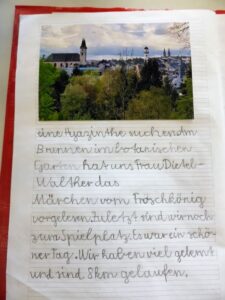 eine Hyazinthe suchen. Im
Brunnen im botanischen
Garten hat uns Frau Dietel-
Walther das
Märchen vom Froschkönig
vorgelesen. Zuletzt sind wir noch
zum Spielplatz. Es war ein schö-
ner Tag. Wir haben viel gelernt
und sind 8km gelaufen.